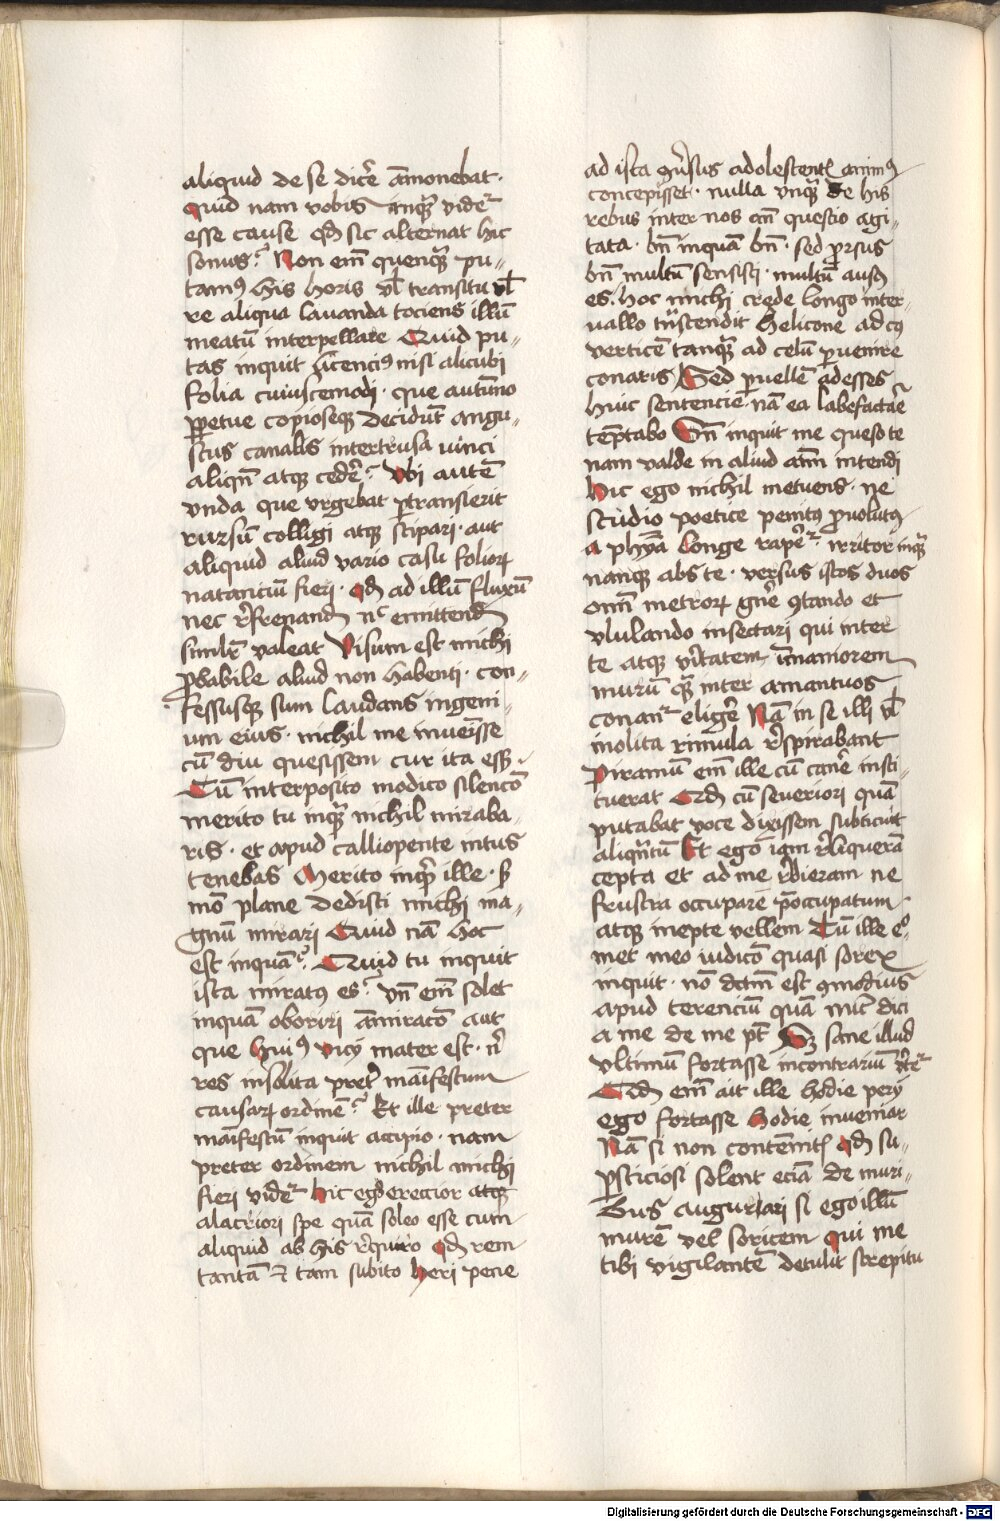 aliquid de se dicẽ ãmonebat·
Quid nam vobis inqͣ videᷣ
esse cause qđ sic alternat hic
sonus? Non em̃ quenqͣ pu„
tamꝰ his horis vł transitu vł
re aliqua lauanda tociens illũ
meatũ interpellare Quid pu„
tas inquit licenciꝰ nisi alicubi
folia cuiuscemodi· que autũno
ꝑpetue copioseqꝫ decidũt angu„
stus canalis intertrusa vinci
aliqñ atqꝫ cedẽ? Vbi autẽ
vnda que vrgebat ꝑtransierit
rursũ colligi atqꝫ stipari· aut
aliquid aliud vario casu folioꝝ
natanciũ fieri· qđ ad illũ fluxũ
nec r̃frenanđ nc̃ emittenđ
simlr̃ valeat Visum est michi
ꝓbabile aliud non habenti· con„
fessusqꝫ sum laudans ingeni„
um eius· nichil me inuenisse
cũ diu quesissem cur ita essꝫ·
Tũ interposito modico silencõ
merito tu inqͣ nichil miraba„
ris· et apud calliopente intus
tenebas Merito inqͣ ille· sꝫ
mõ plane dedisti michi ma„
gnũ mirari Quid nã hoc
est inquã? Quid tu inquit
ista miratꝰ es? vñ em̃ solet
inquã oboriri ãmiracõ aut
que huiꝰ vicij mater est· ñ
res insolita preter̃ maĩfestum
causaꝝ ordinẽ? Et ille preter
maĩfestũ inquit accipio· nam
preter ordinem nichil michi
fieri videᷣ hic ego erectior atqꝫ
alacriori spe quã soleo esse cum
aliquid ab his r̃quiro qđ rem
tantã ⁊ tam subito heri pene
ad ista ꝯũsus adolescentis animꝰ
concepisset· nulla vnqͣ de his
rebus inter nos añ questio agi„
tata· bñ inquã bñ· sed ꝓrsus
bñ multũ sensisti· multũ ausꝰ
es· hoc michi crede longo inter„
uallo tñscendit helicone ad cꝰ
verticẽ tanqͣ ad celũ ꝑuenire
conaris Sed vellẽ adesses
huic sentencie· nã ea labefactar̃
tẽptabo Sñ inquit me queso te
nam valde in aliud aĩm intendi
Hic ego nichil metuens· ne
studio poetice penitꝰ ꝓuolutꝰ
a phiã longe rapẽᷣ· irritor inqͣ
nanqꝫ abs te· versus istos duos
omĩ metroꝝ gñe ꝯtando et
vlulando insectari qui inter
te atqꝫ vĩtatem ĩmaniorem
murũ qͣ inter amantuos
conanᷣ eligẽ Nã in se illi vł
inolita rimula r̃spirabant
Piramũ em̃ ille cũ canẽ insti„
tuerat Qđ cũ seueriori quã
putabat voce dixissem subticuit
aliqñtũ Et ego iam r̃liquerã
cepta et ad me r̃dieram ne
frustra occupare p̃occupatum
atqꝫ inepte vellem Tũ ille e°·
met meo iudicõ quasi sorex
inquit· nõ dc̃m est ꝯmodius
apud terenciũ quã nũc dici
a me de me pt̃ Sꝫ sane illud
vltimũ fortasse incontrariũ r̃teᷣ
Qđ em̃ ait ille hodie perij
ego fortasse hodie inueniar
Nã si non contẽnitis qđ su„
ꝑsticiosi solent eciã de muri„
bus auguriari si ego illũ
murẽ vel soricem qui me
tibi vigilantẽ detulit strepitu
Digitalisierung gefördert durch die Deutsche Forschungsgemeinschaft - DFG